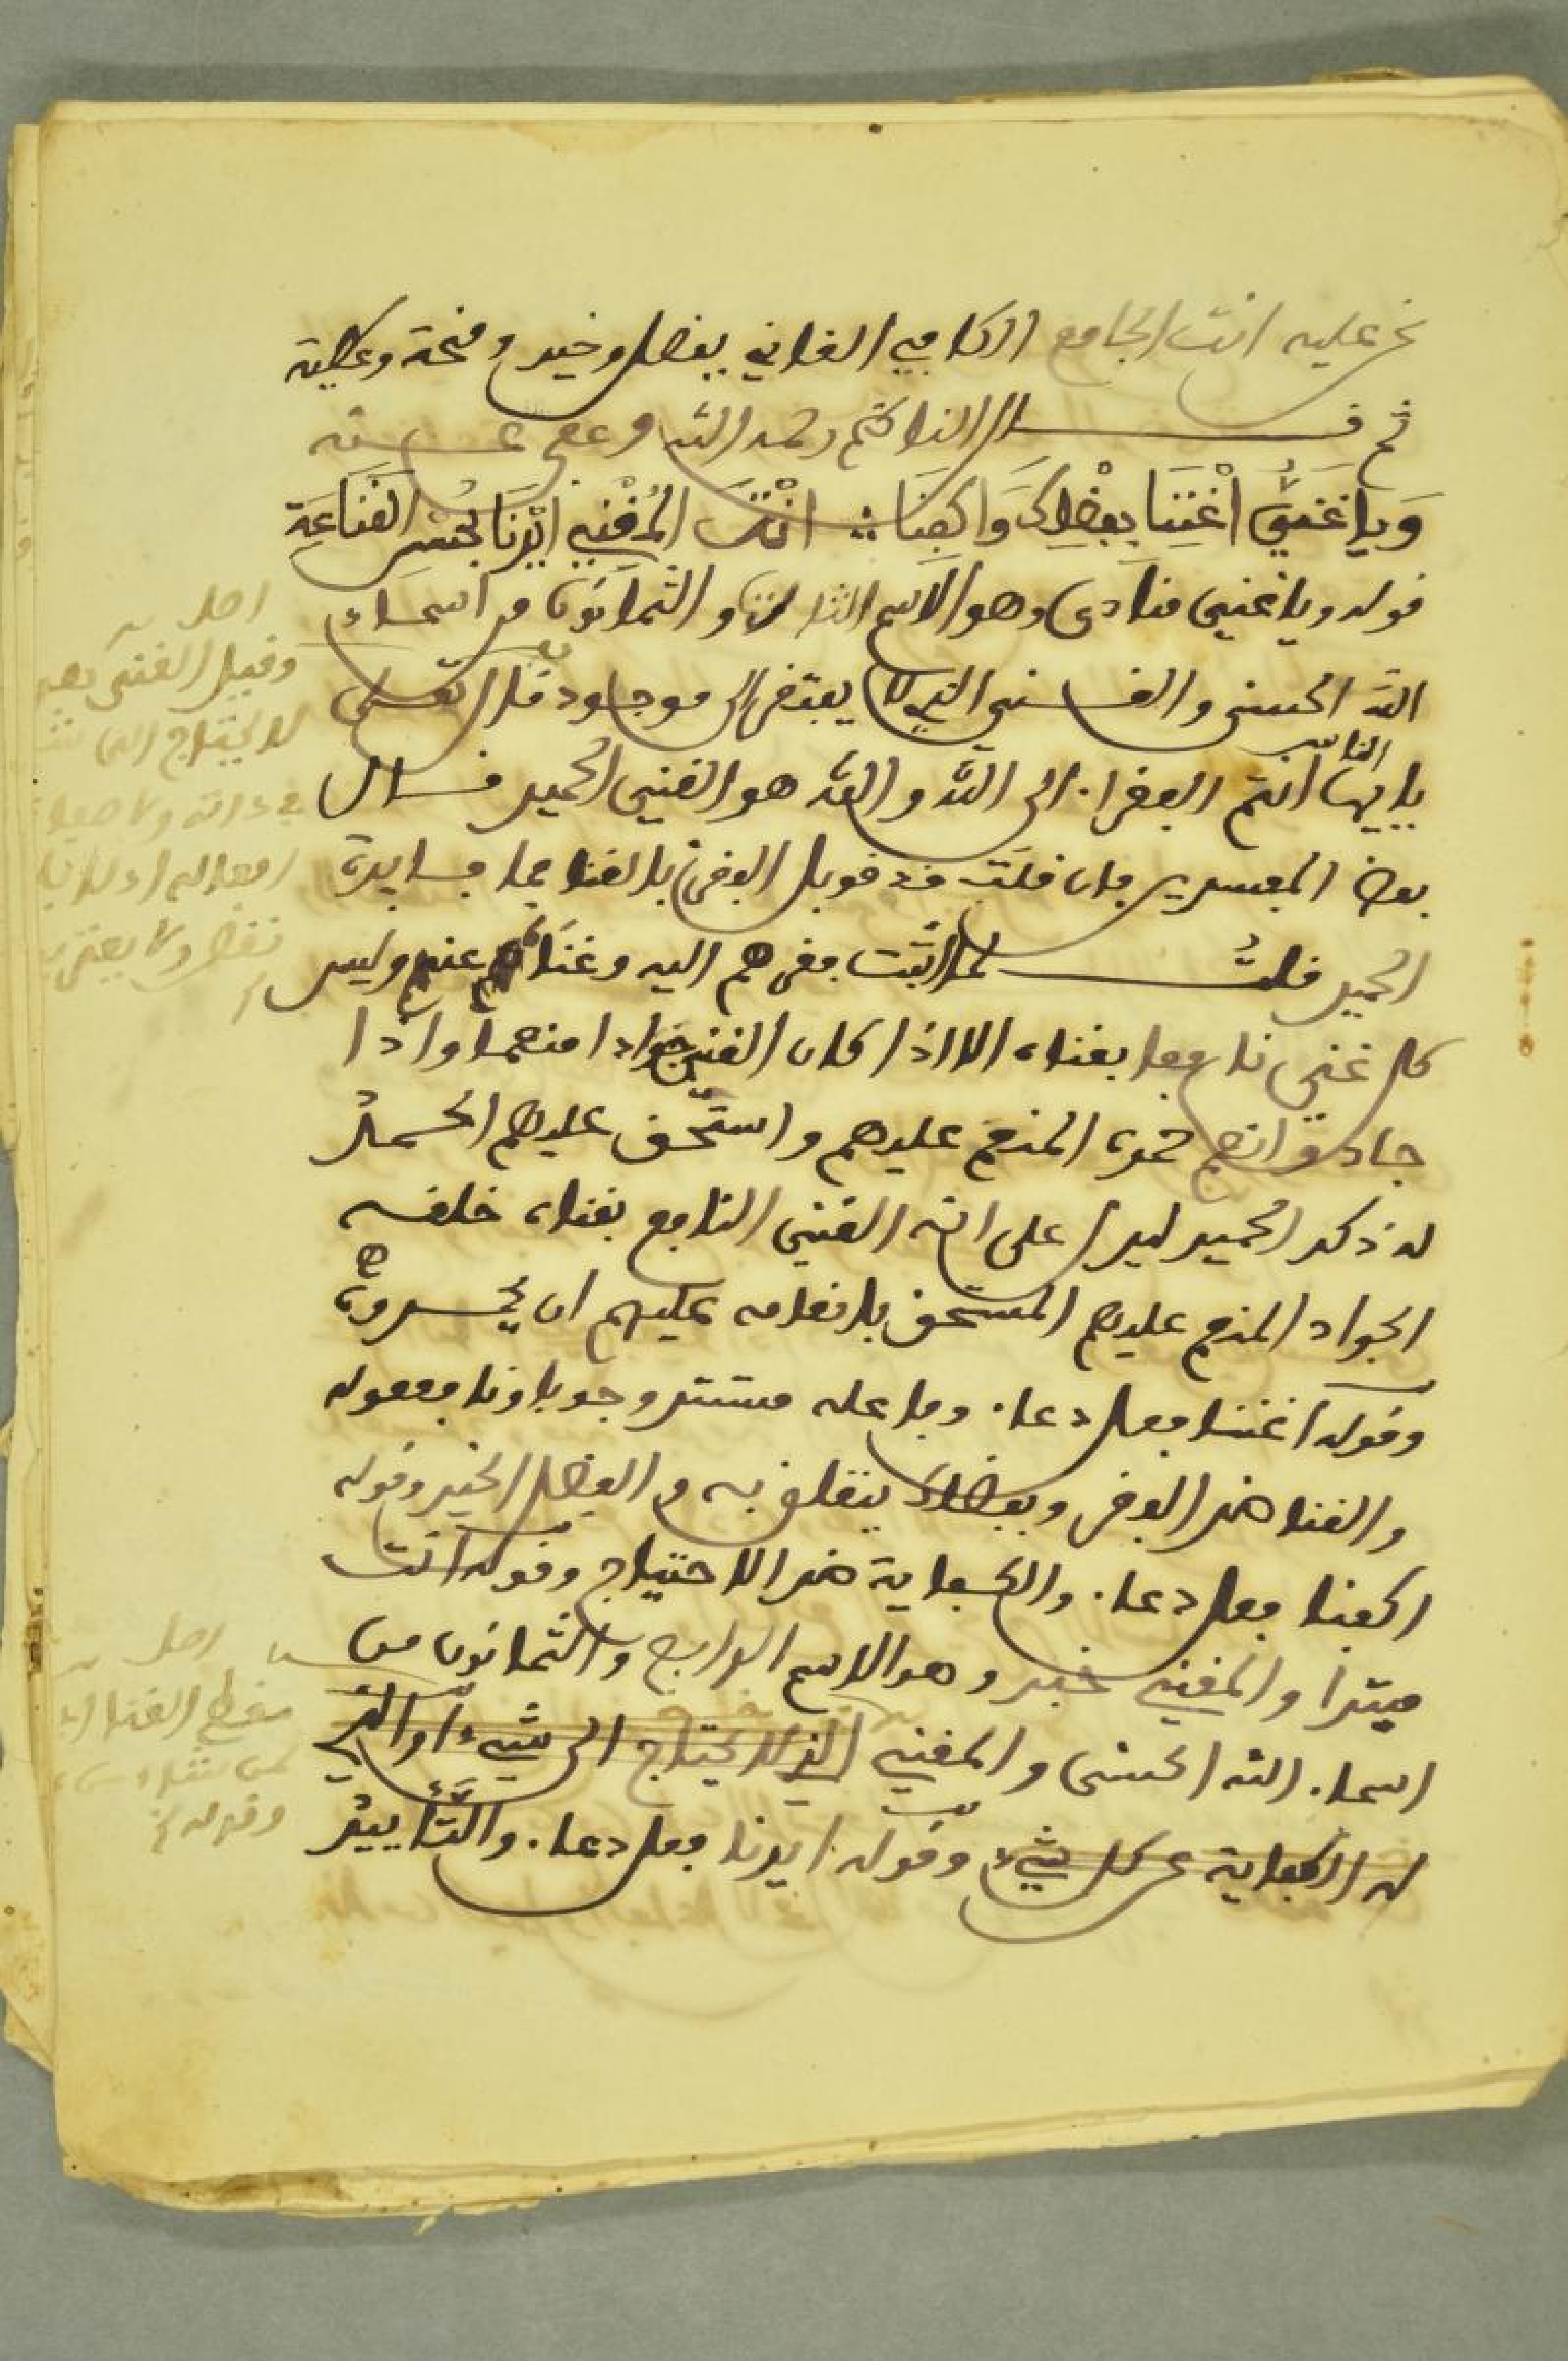 نحن عليه انت الجامع الكافي الغاني بفضل وخير ومنحة وعطية
ثم قال الناظم رحمه الله وعفى عنه
وَيا غَنيُّ اغْنِنَا بفضْلِكَ وَاكفِنَا ∴ انْتَ المُغْنِي ايدْنَا بحُسْنِ القَنَاعَةِ
قوله ويا غني منادى وهو الاسم الثالث والثمانون من اسماء
الله الحسنى والغني الذي لا يفتقر الى موجود قال تعلى
يا ايها الناس انتم الفقراء الى اللّه واللّه هو الغني الحميد قال
بعض المفسرين فان قلت قد قوبل الفقر بالغنا فما فايدة
الحميد قلتُ لما اثبت فقرهم اليه وغناه عنهم وليس
كل غني نافعا بغناه الا اذا كان الغني جوادا منعما واذا
جاد وانعم حمده المنعم عليهم واستحق عليهم الحمدُ
له ذكر الحميد ليدل على انه الغني النافع بغناه خلقه
الجواد المنعم عليهم المستحق بانعامه عليهم ان يحمدوه
وقوله اغننا فعل دعاء وفاعله مستتر وجوبا ونا مفعوله
والغنا ضد الفقر وبفضلك يتعلق به والفضل الخير وقوله
اكفنا فعل دعاء والكفاية ضد الاحتياج وقوله انت
مبتدا والمغني خبر وهو الاسم الرابع والثمانون من
اسماء الله الحسنى والمغني الذي لا يحتاج الى شيء او الذي
له الكفاية عن كل شيء وقوله ايدنا فعل دعاء والتَّأييدُ
اصل
وقيل الغني هو
لا يحتاج الى
في ذاته ولا
افعاله اذ لا
نقص ولا يعتريه
اصل
معطي الغنا
لمن يشاء من
وقوله